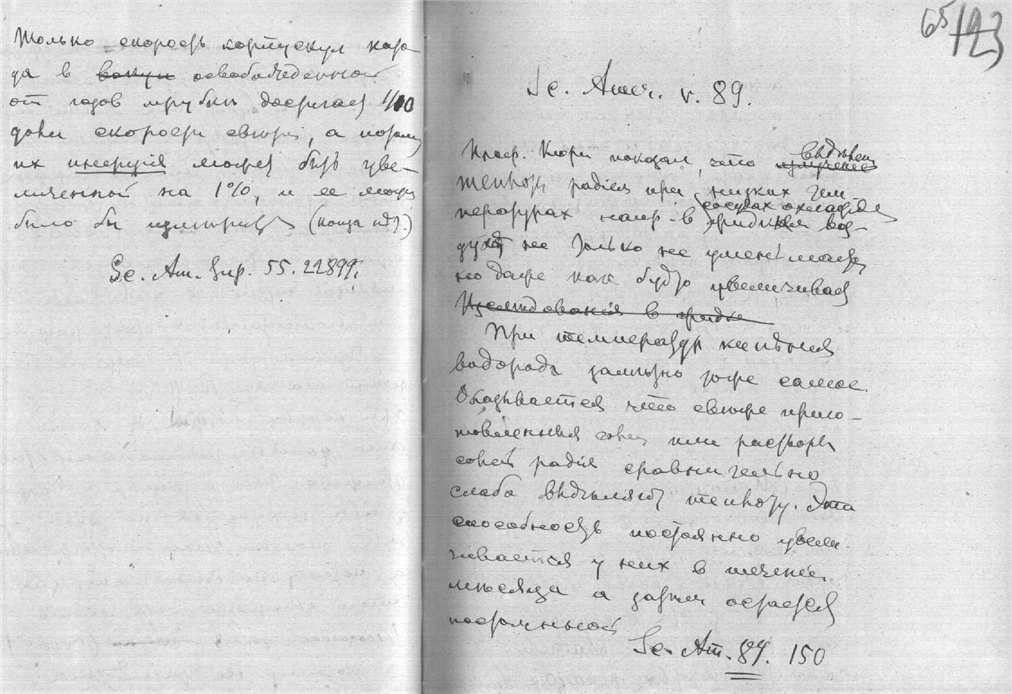 Только скорость корпускул когда
да в вакуум освобожденной
от газов трубки достигает 1/10
доли скорости света, а потому
их инерция может быть уве-
личенной на 1%, и ее можно
было бы измерить (конца нет.)
Sc. Am. Sup. 55. 22899.
65/123
Sc. Amer. v. 89.
Проф. Кюри показал, что излучение выделен
теплоты радiем при низких тем
пературах напр. в сосудах охлажден жидким воз-
духом не только не уменьшается
но даже как будто увеличивается
Изследованiя в жидко
При температуре кипѣнiя
водорода замѣтно тоже самое.
Оказывается что свѣже приго-
товленныя соли или растворы
солей радiя сравнительно
слабо выдѣляют теплоту. Эта
способность постоянно увели-
чивается у них в теченiи
мѣсяца а затем остается
постоянной
Sc. Am. 89. 150